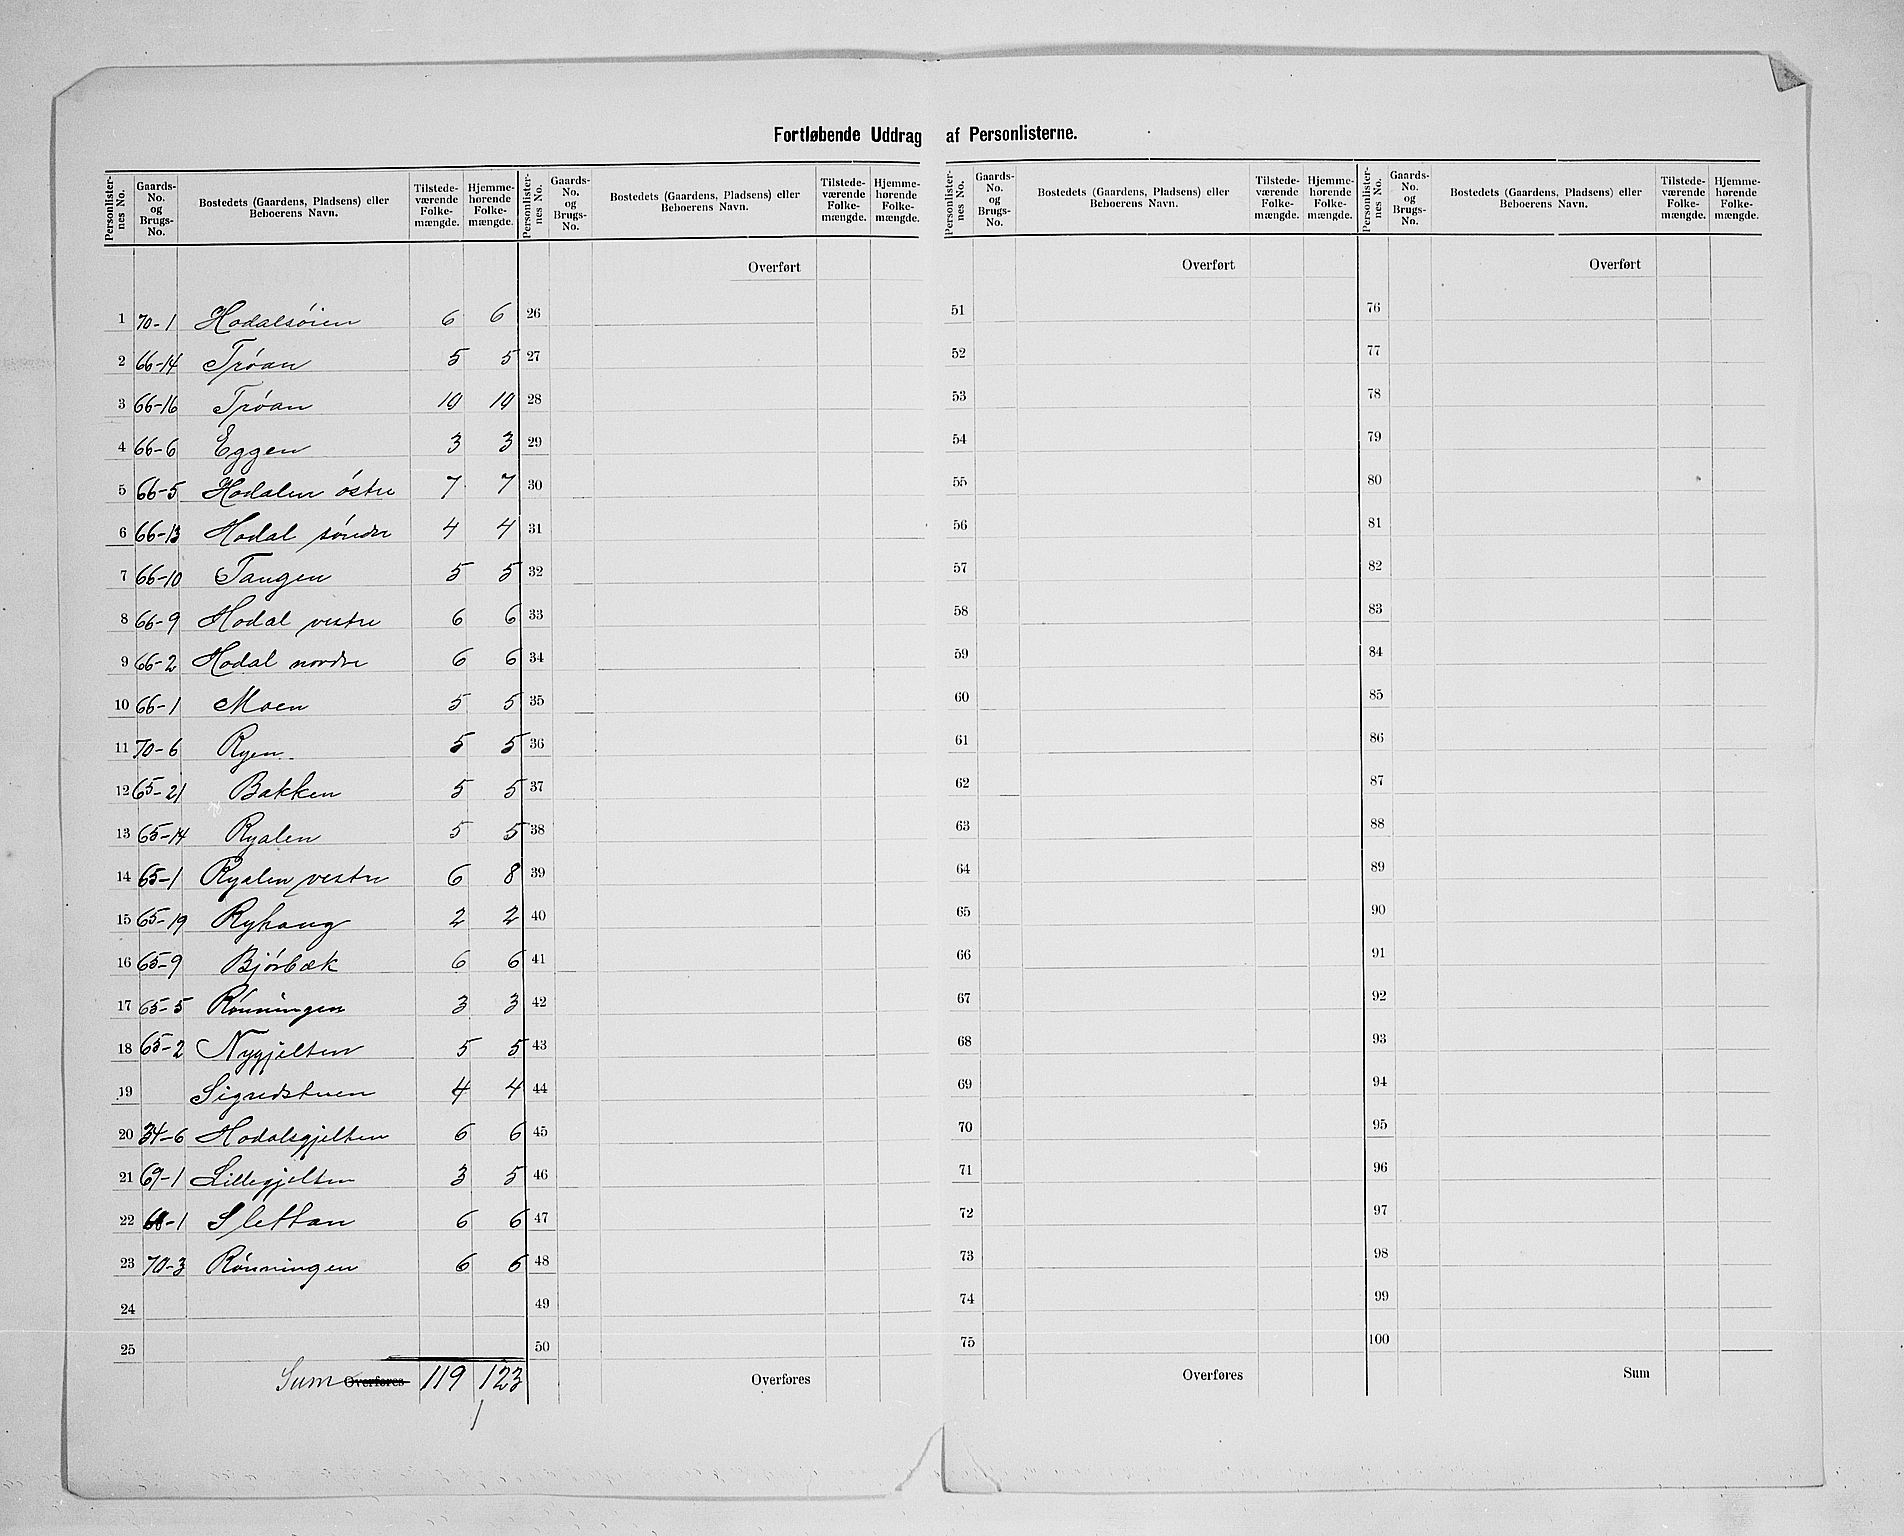 Fortløbende Uddrag af Personlisterne.
Personlister-nes No. | Gaards-No. og Brugs-No. | Bostedets (Gaardens, Pladsens) eller Beboerens Navn. | Tilstede-værende Folke-mængde. | Hjemme-hørende Folke-mængde. | Personlister-nes No. | Gaards-No. og Brugs-No. | Bostedets (Gaardens, Pladsens) eller Beboerens Navn. | Tilstede-værende Folke-mængde. | Hjemme-hørende Folke-mængde. | Personlister-nes No. | Gaards-No. og Brugs-No. | Bostedets (Gaardens, Pladsens) eller Beboerens Navn. | Tilstede-værende Folke-mængde. | Hjemme-hørende Folke-mængde. | Personlister-nes No. | Gaards-No. og Brugs-No. | Bostedets (Gaardens, Pladsens) eller Beboerens Navn. | Tilstede-værende Folke-mængde. | Hjemme-hørende Folke-mængde.
Overført Overført Overført
1 70-1 Hodalsöien 6 6 26 51 76
2 66-14 Trøan 5 5 27 52 77
3 66-16 Trøan 10 10 28 53 78
4 66-6 Eggen 3 3 29 54 79
5 66-5 Hodalen östre 7 7 30 55 80
6 66-13 Hodal söndre 4 4 31 56 81
7 66-10 Tangen 5 5 32 57 82
8 66-9 Hodal vestre 6 6 33 58 83
9 66-2 Hodal nordre 6 6 34 59 84
10 66-1 Moen 5 5 35 60 85
11 70-6 Ryen 5 5 36 61 86
12 65-21 Bakken 5 5 37 62 87
13 65-14 Ryalen 5 5 38 63 88
14 65-1 Ryalen vestre 6 8 39 64 89
15 65-19 Ryhaug 2 2 40 65 90
16 65-9 Bjørbæk 6 6 41 66 91
17 65-5 Rönningen 3 3 42 67 92
18 65-2 Nygjelten 5 5 43 68 93
19 Sigredstuen 4 4 44 69 94
20 34-6 Hodalsgjelten 6 6 45 70 95
21 69-1 Lillegjelten 3 5 46 71 96
22 68-1 Slettan 6 6 47 72 97
23 70-3 Rönningen 6 6 48 73 98
24 49 74 99
25 50 75 100
Sum Overføres 119 123 Overføres Overføres Sum